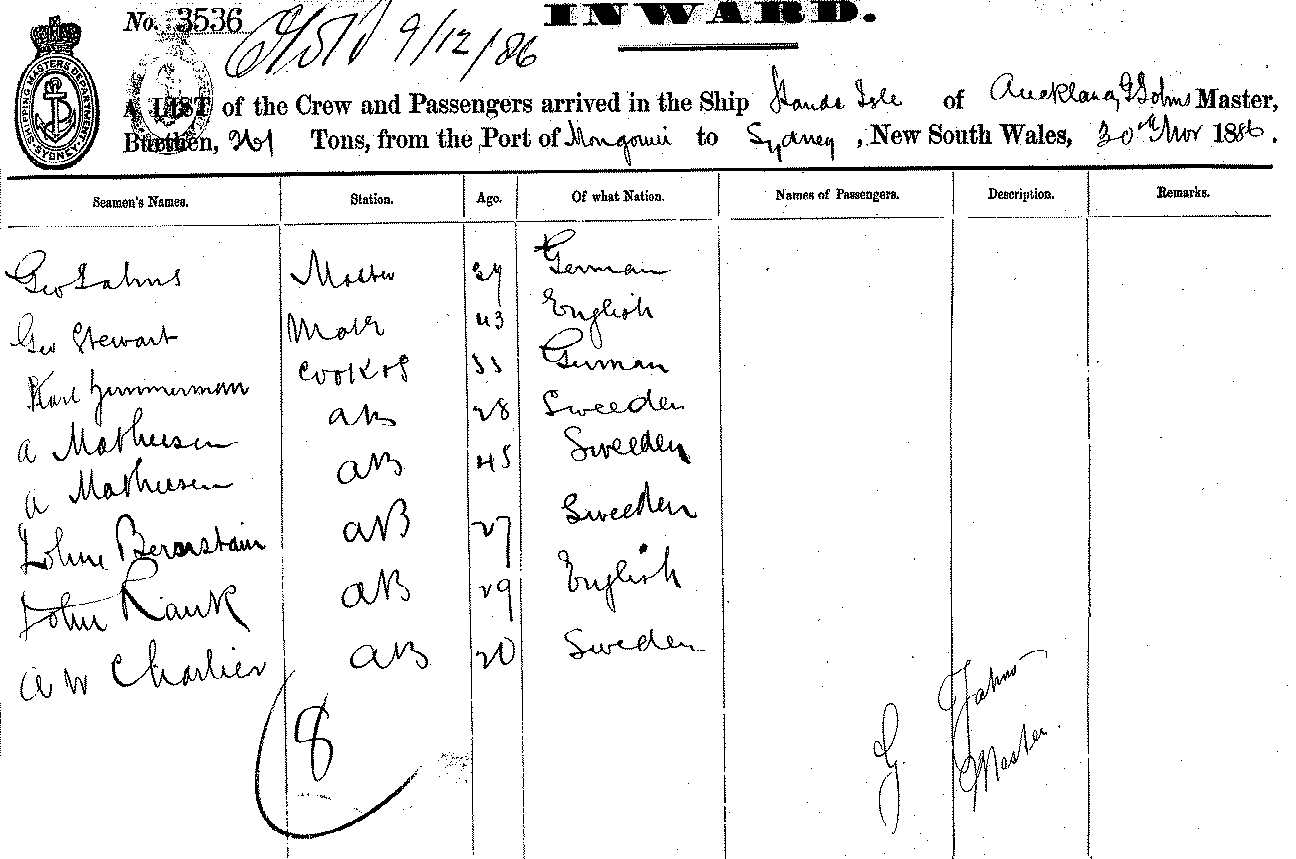 No. 3536
INWARD.
9/12/86
SHIPPING MASTERS DEPARTMENT SYDNEY
A LIST of the Crew and Passengers arrived in the Ship Hands Isle of Auckland, G Jahns Master,
Burthen, Tons, from the Port of Mongonui to Sydney, New South Wales, 30th Nov 1886.
Seamen's Names. Station. Age. Of what Nation. Names of Passengers. Description. Remarks.
Geo Jahns Master German
Geo Stewart Mate 43 English
Karl Zimmerman Cook & S 33 German
A Matheesen AB 28 Sweeden
A Matheesen AB 45 Sweeden
Johne Bernstain AB 27 Sweeden
John Rank AB 29 English
A W Charlier AB 20 Sweden
8
G Jahns
Master